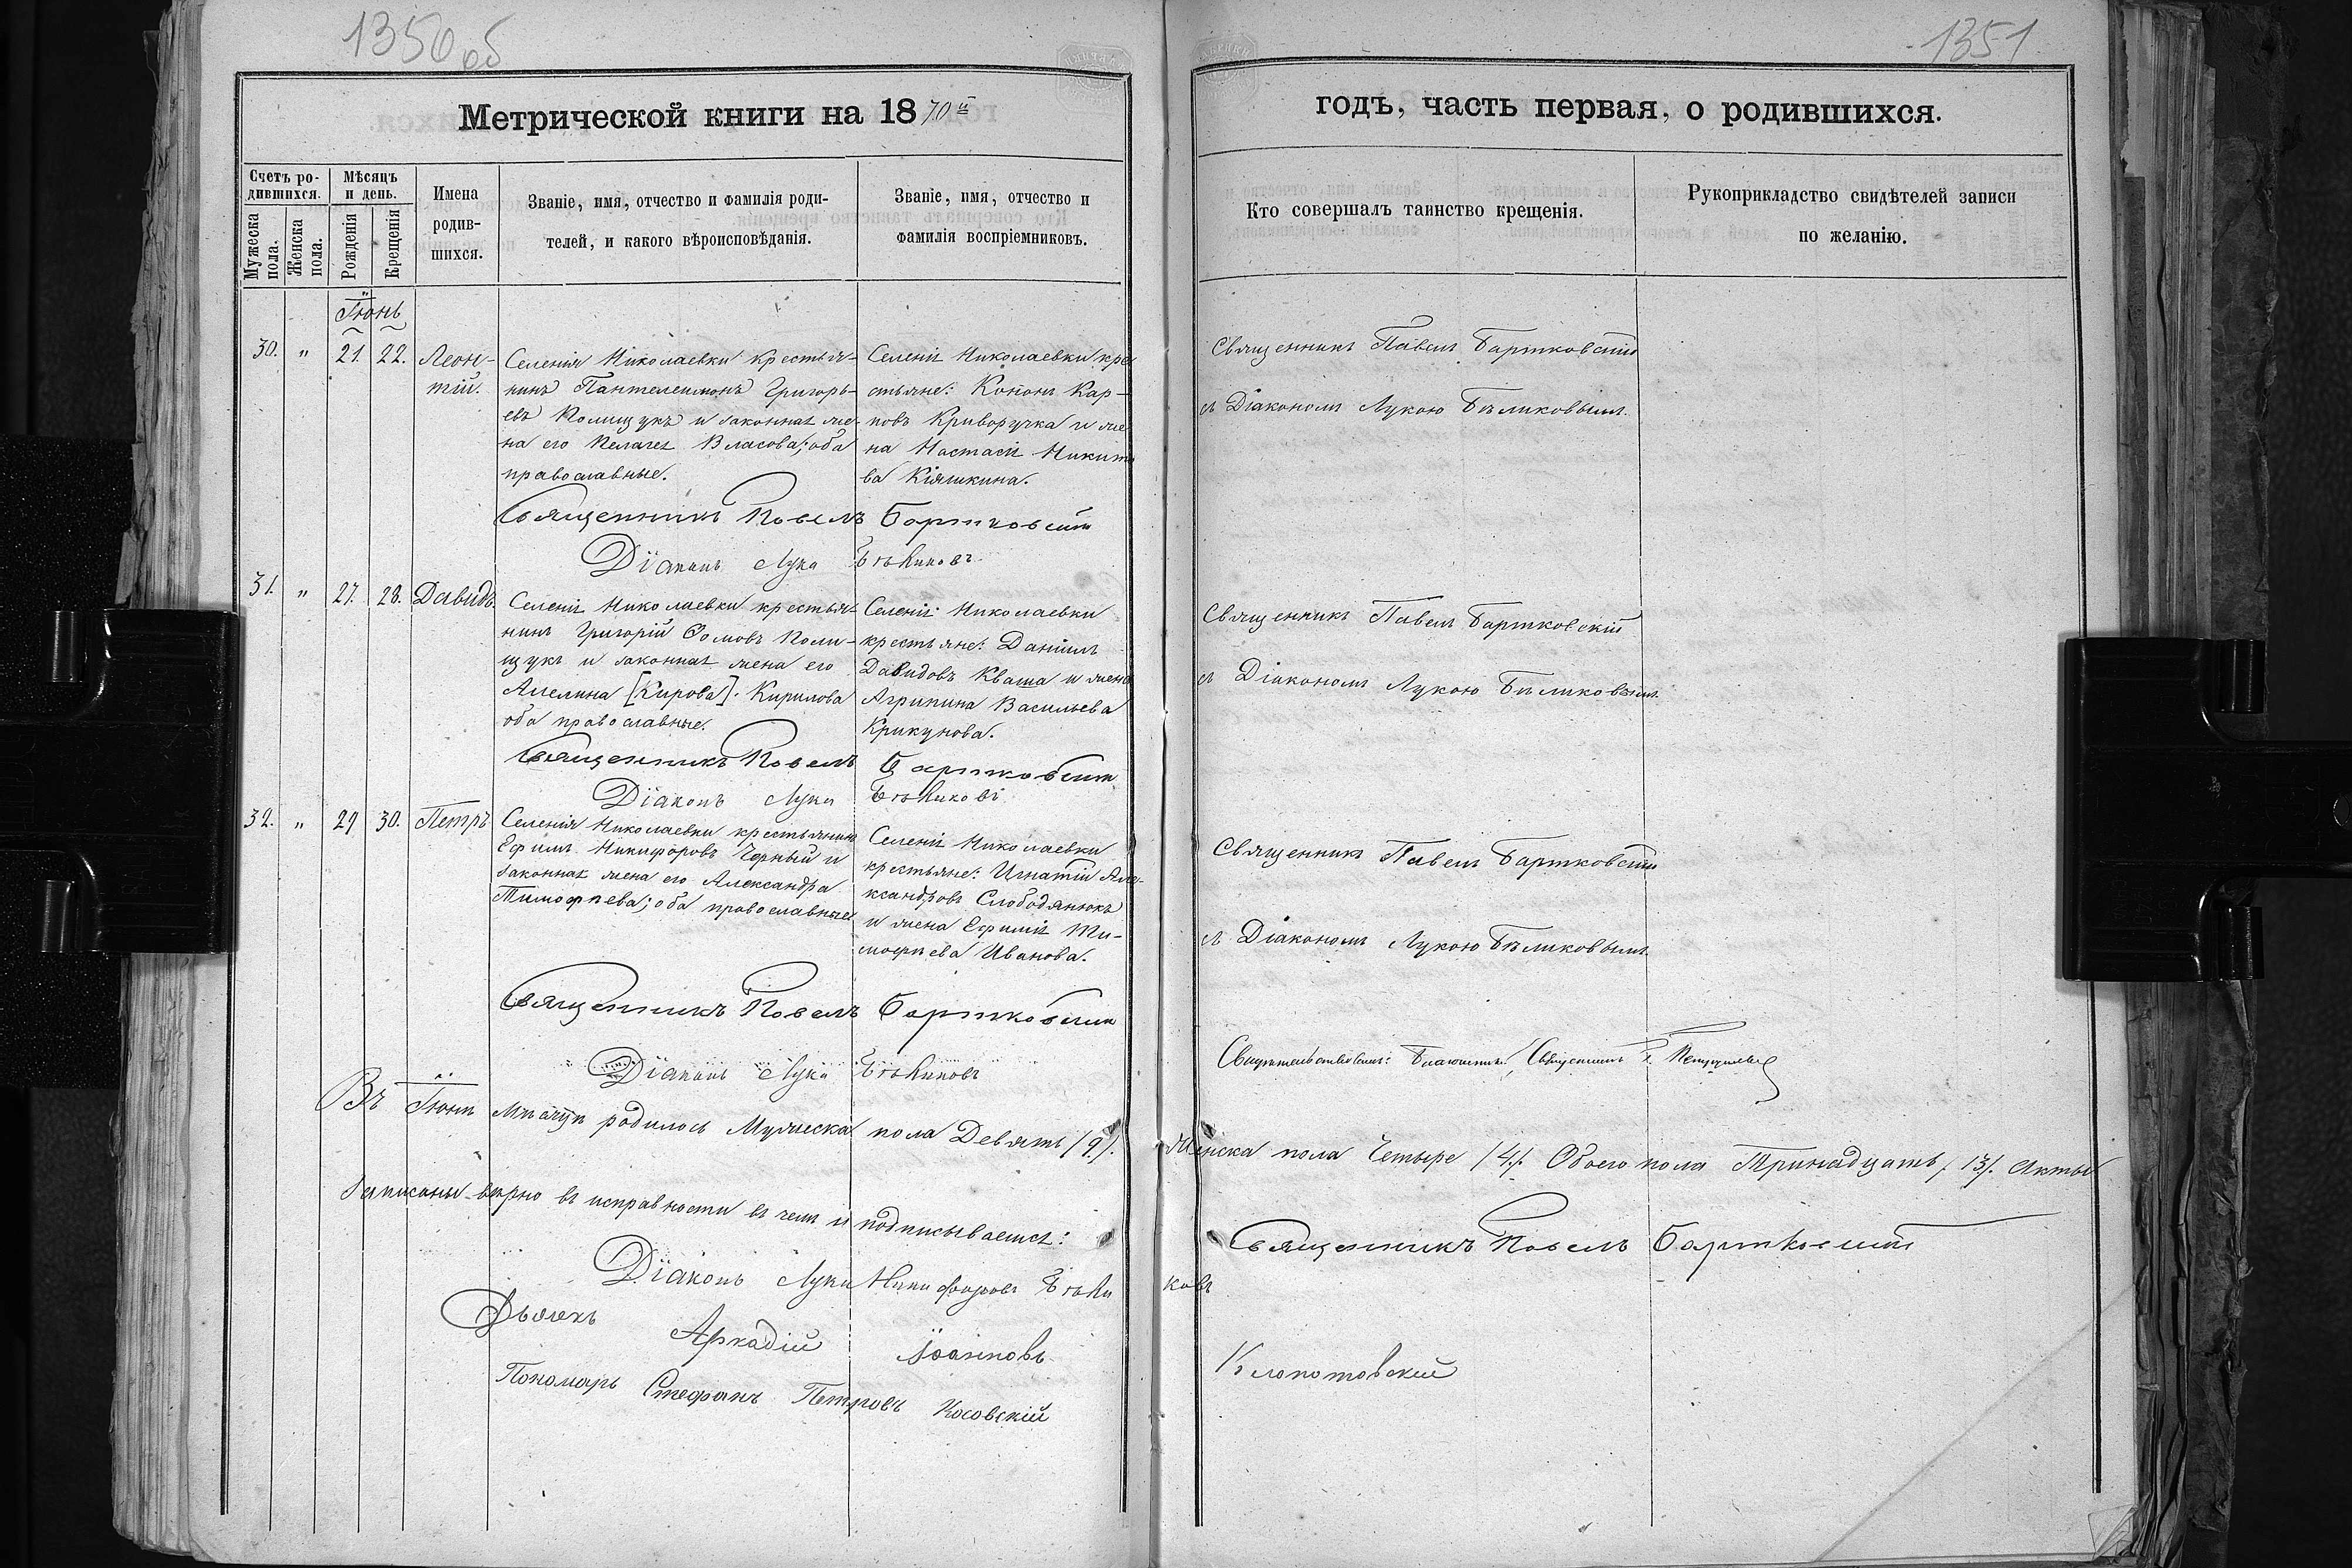 1350 об
1351
Метрической книги на 1870й
годъ, часть первая, о родившихся.
Счетъ ро-
дившихся.
Мужеска
пола.
Женска
пола.
Мѣсяцъ
и день.
Рожденія
Крещенія
Имена
родив-
шихся.
Званіе, имя, отчество и фамилія роди-
телей, и какого вѣроисповѣданія.
Званіе, имя, отчество и
фамилія воспріемниковъ.
Кто совершалъ таинство крещенія.
Рукоприкладство свидѣтелей записи
по желанію.
Іюнь
30. " 21. 22. Леон-
тій.
Селенія Николаевки крестья-
нинъ Пантелеимонъ Григорь-
евъ Полищукъ и законная же-
на его Пелагея Власова; оба
православные.
Селенія Николаевки кре
стьяне: Кононъ Кар-
повъ Криворучка и же
на Настасія Никито
ва Кіяшкина.
Священникъ Павелъ Бартковскій
съ Діакономъ Лукою Бѣликовымъ.
Священникъ Павелъ Бартковскій
Діаконъ Лука Бѣликовъ
31. " 27. 28. Давидъ.
Селенія Николаевки крестья-
нинъ Григорій Ѳомовъ Поли-
щукъ и законная жена его
Акелина [Кирова]. Кирилова
оба православные.
Селенія Николаевки
крестьяне: Даніилъ
Давидовъ Кваша и жена
Агрипина Васильева
Крикунова.
Священникъ Павелъ Бартковскій
съ Діакономъ Лукою Бѣликовымъ.
Священникъ Павелъ Бартковскій
Діаконъ Лука Бѣликовъ
32. " 29 30. Петръ
Селенія Николаевки крестьянинъ
Ефимъ Никифоровъ Черный и
законная жена его Александра
Тимофѣева; оба православные
Селенія Николаевки
крестьяне: Игнатій Але-
ксандровъ Слободянюкъ
и жена Ефимія Ти-
мофѣева Иванова.
Священникъ Павелъ Бартковскій
съ Діакономъ Лукою Бѣликовымъ.
Священникъ Павелъ Бартковскій
Діаконъ Лука Бѣликовъ
Свидѣтельствовалъ: Благочинный, Священникъ
Въ Іюнѣ мѣсяцѣ родилось Мужеска пола Девять /9/. Женска пола Четыре /4/. Обоего пола Тринадцать /13/. Акты
записаны вѣрно въ исправности въ чемъ и подписываемся:
Священникъ Павелъ Бартковскій
Діаконъ Лука Никифоровъ Бѣликовъ
Дьячекъ Аркадій Іоанновъ Клопотовскій
Пономарь Стефанъ Петровъ Косовскій